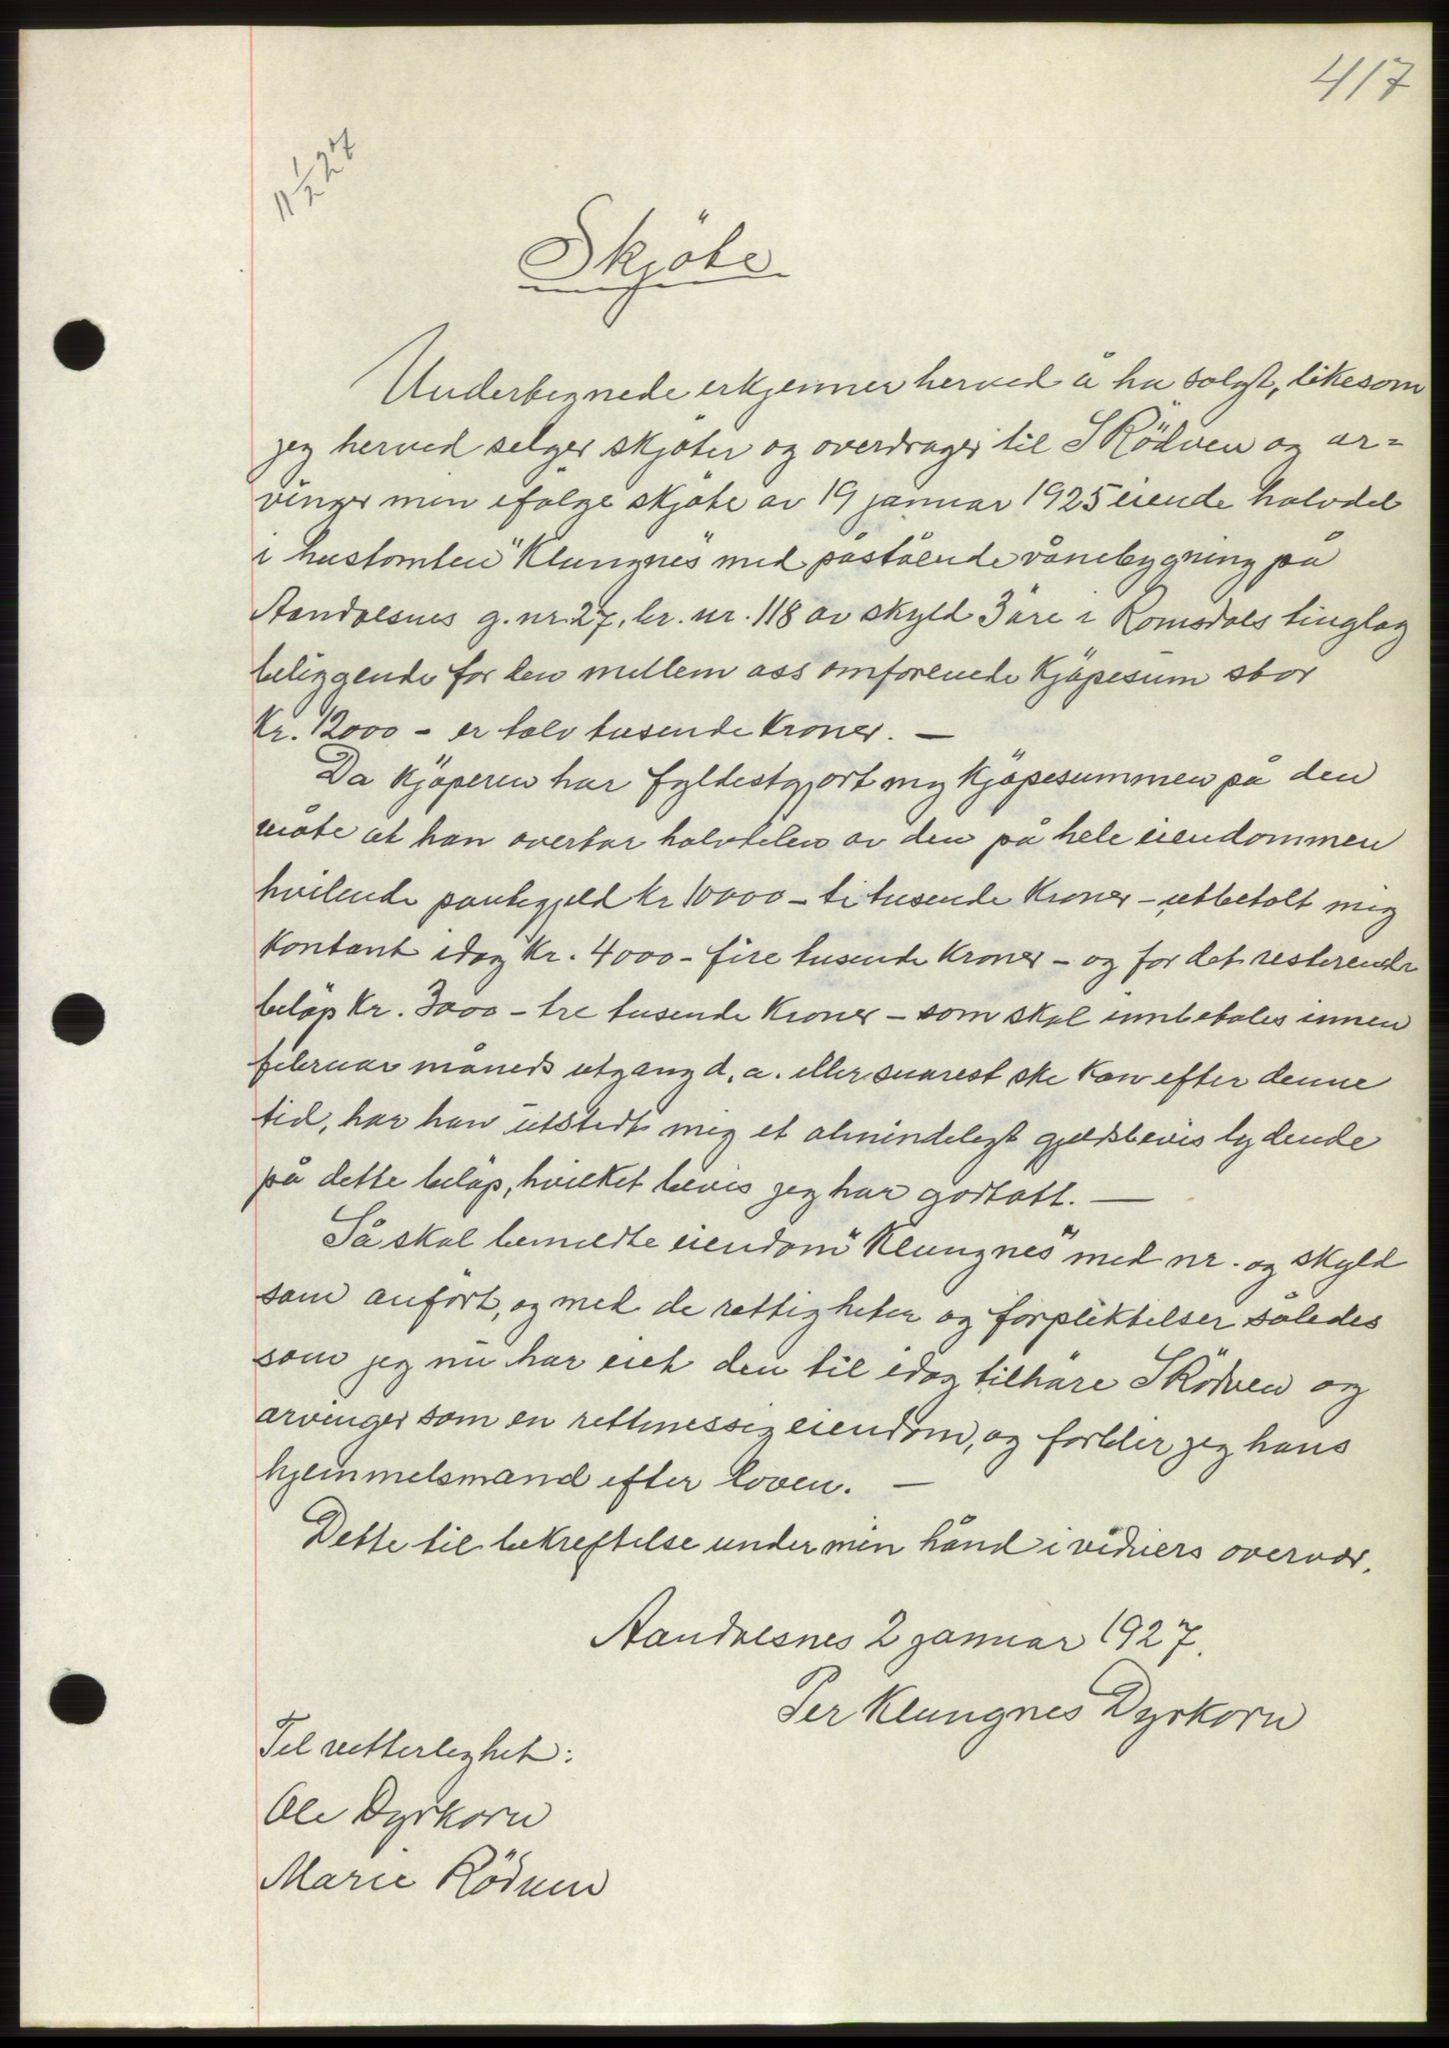 417
11/2 27
Skjöte
Undertegnede erkjenner herved å ha solgt, likesom
jeg herved selger skjöter og overdrager til S Rödven og ar=
vinger min ifölge skjöte av 19 januar 1925 eiende halvdel
i hustomten "Klungnes" med påstående vånebygning på
Aandalsnes g. nr. 27, br. nr. 118 av skyld 3 öre i Romsdals tinglag
beliggende for den mellem oss omforenede kjöpesum stor
Kr. 12000 - er tolv tusende kroner. —
Da kjöperen har fyldestgjort mig kjöpesummen på den
måte at han overtar halvdelen av den på hele eiendommen
hvilende pantegjeld kr 10000 - ti tusende kroner - utbetalt mig
kontant idag kr. 4000 - fire tusende kroner - og for det resterende
belöp kr. 3000 - tre tusende kroner - som skal innbetales innen
februar måneds utgang d. a. eller snarest ske kan efter denne
tid, har han utstedt mig et almindeligt gjeldsbevis lydende
på dette belöp, hvilket bevis jeg har godtatt. —
Så skal bemeldte eiendom "Klungnes" med nr. og skyld
som anfört, og med de rettigheter og forpliktelser således
som jeg nu har eiet den til idag tilhöre S Rödven og
arvinger som en rettmessig eiendom, og forblir jeg hans
hjemmelsmand efter loven. —
Dette til bekreftelse under min hånd i vidners overvær.
Aandalsnes 2 januar 1927.
Per Klungnes Dyrkorn
Til vitterlighet:
Ole Dyrkorn
Marie Rödven